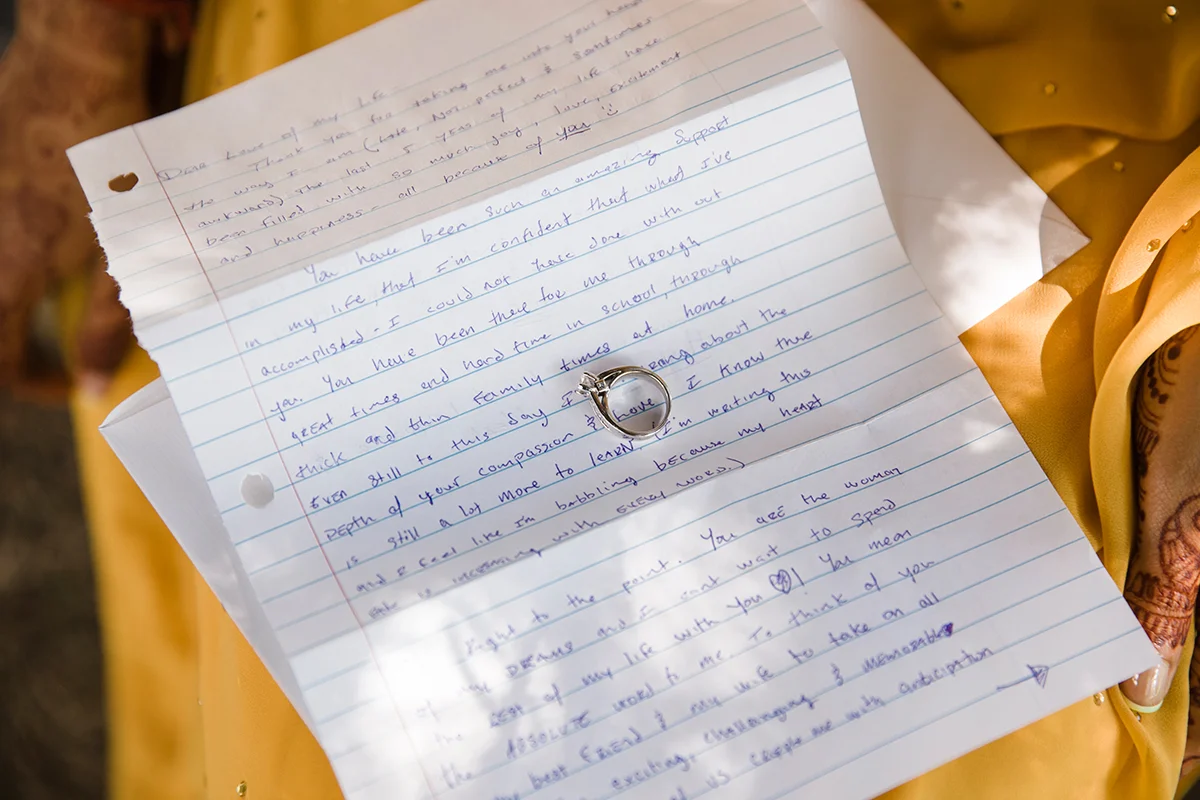 Dear Love of my life
Thank you for taking me into your heart
the way I am (Late, Not perfect & sometimes
awkward) The last 1 year of my life have
been filled with so much joy, love, excitement
and happiness - all because of you
You have been such an amazing support
in my life, that I'm confident that what I've
accomplished - I could not have done with out
you. You have been there for me through
GREAT times and hard time in school, through
thick and thin Family times at home.
EVEN still to this day I about the
DEPTH of your compassion & love I know there
is still a lot more to leaRN. (I'm writing this
and I feel like I'm babbling because my heart
rate is increasing with EVERY word.)
Right to the point. You ARE the woman
of DREAMS and I cant wait to spend
the REST of my life with you ! You mean
the ABSOLUTE world to me. To think of you
best FRIEND & my wife to take on all
exciting, challanging & MEMORABLE
us me with anticipation